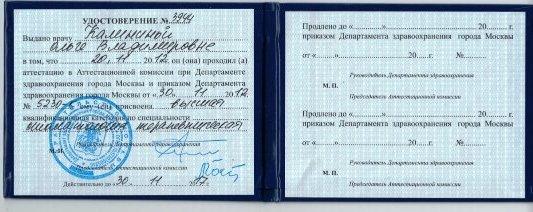 УДОСТОВЕРЕНИЕ № 3944
Выдано врачу Калининой
Ольге Владимировне
в том, что 20.11 2012, он (она) проходил (а)
аттестацию в Аттестационной комиссии при Департаменте
здравоохранения города Москвы и приказом Департамента
здравоохранения города Москвы от «30» 11 2012
№ 5230 ему (ей) присвоена высшая
квалификационная категория по специальности
стоматология терапевтическая
Руководитель Департамента здравоохранения
М.П.
Председатель Аттестационной комиссии
Действительно до «30» 11 2017.
Продлено до «..............».............................. 20........ г.
приказом Департамента здравоохранения города Москвы
от «..............».............................. 20........ г. №..............
Руководитель Департамента здравоохранения
М. П.
Председатель Аттестационной комиссии
Продлено до «..............».............................. 20........ г.
приказом Департамента здравоохранения города Москвы
от «..............».............................. 20........ г. №..............
Руководитель Департамента здравоохранения
М. П.
Председатель Аттестационной комиссии